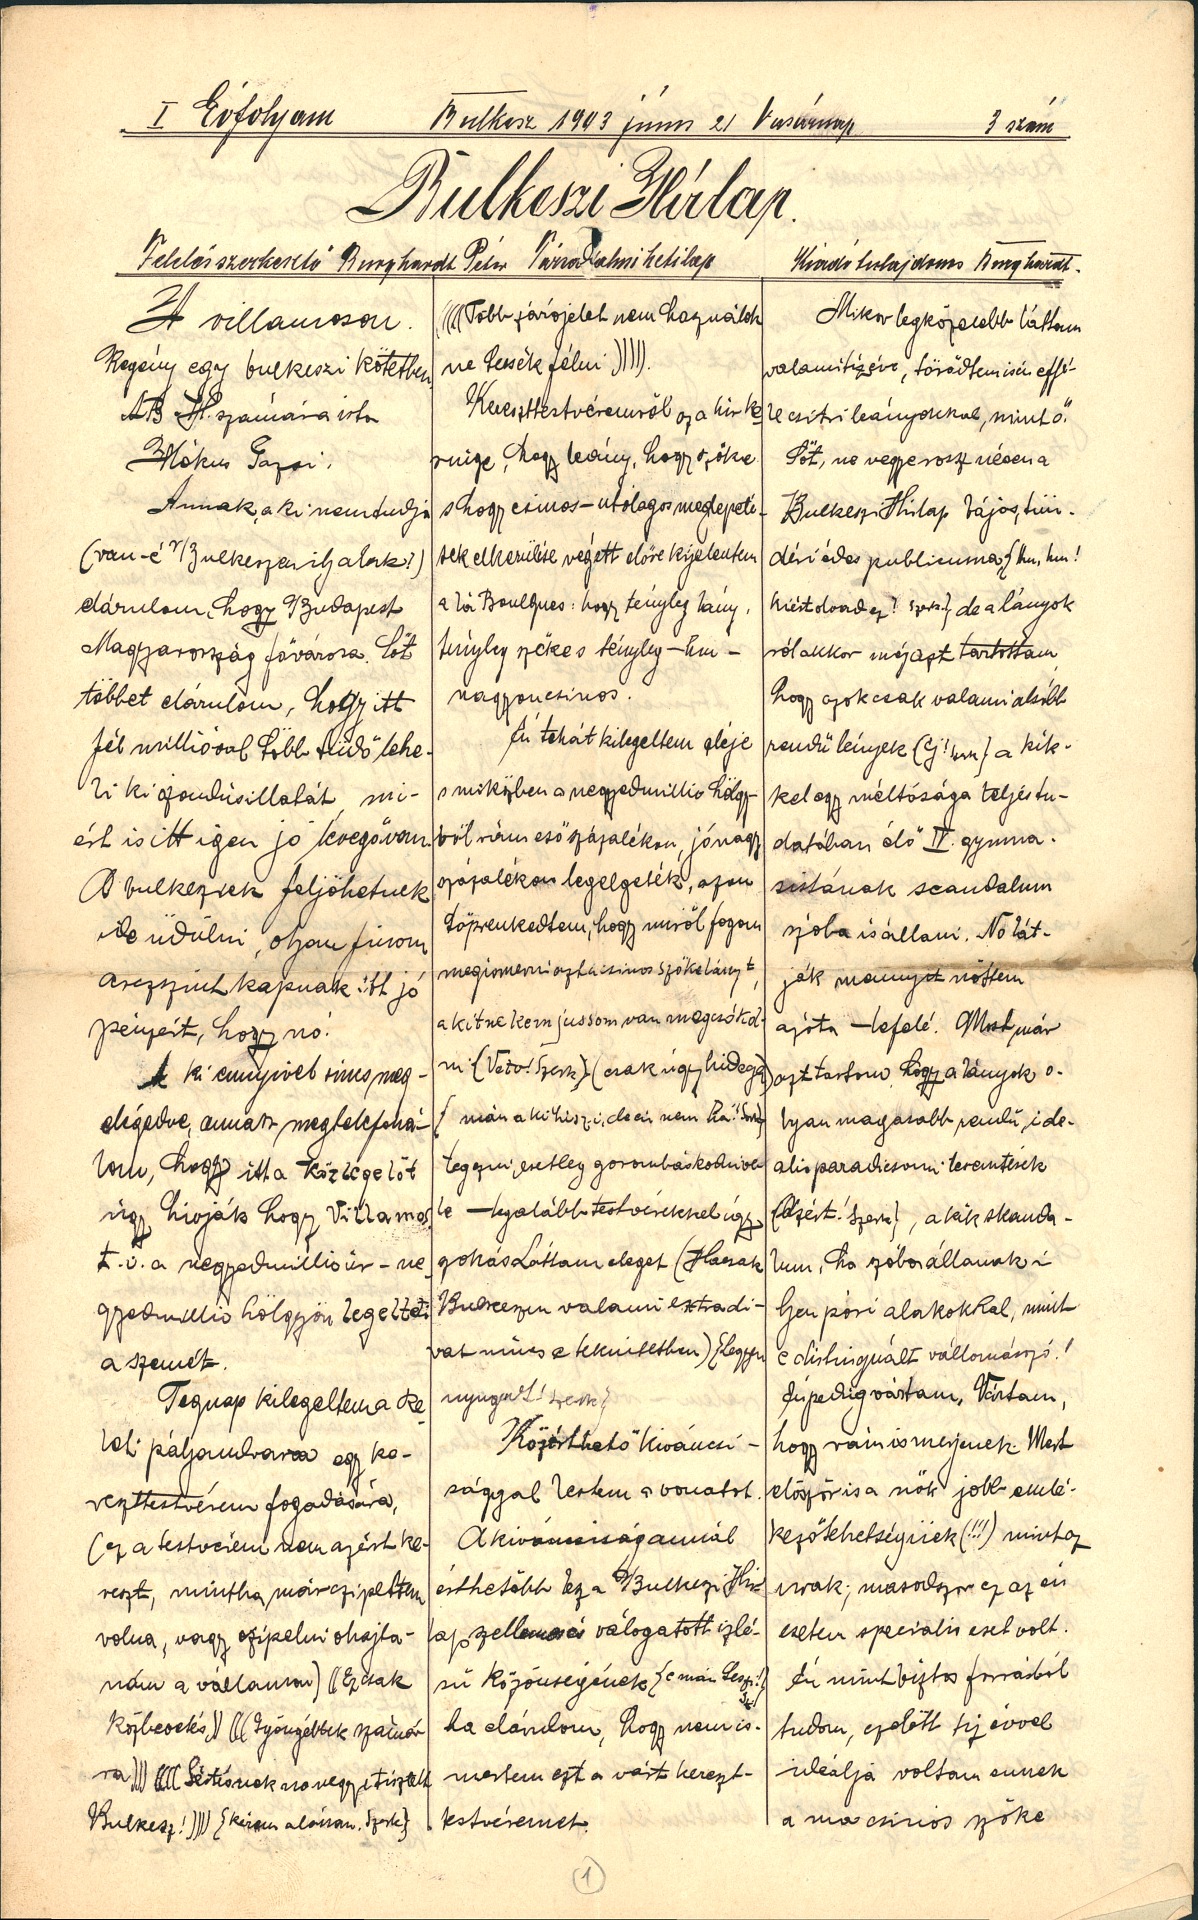 I Évfolyam Bulkesz 1903 június 21 Vasárnap 3 szám
Bulkeszi Hírlap.
Felelős szerkesztő Burghardt Péter Társadalmi hetilap Kiadó tulajdonos Burghardt.
A villamoson.
Regény egy bulkeszi kötetben
A B H. számára irta
Mókus Gazsi.
Annak, a ki nem tudja
(van-é Bulkeszen ily alak?)
elárulom, hogy Budapest
Magyarország fővárosa. Sőt
többet elárulom, hogy itt
fél millióval több tüdő lehe-
li ki ózondús illatát mi-
ért is itt igen jó levegő van.
A bulkesziek feljöhetnek
ide üdülni, olyan finom
arczszint kapnak itt jó
pénzért, hogy no!
A ki ennyivel sincs meg-
elégedve, annak megtelefoná-
lom, hogy itt a közlegelőt
úgy hivják hogy Villamos
t. i. a negyedmillió úr - ne-
gyedmillió hölgyön legelteti
a szemét.
Tegnap kilegeltem a ke-
leti pályaudvarra egy ke-
reszttestvérem fogadására,
(ez a testvérem nem azért ke-
reszt, mintha már czipeltem
volna, vagy czipelni ohajta-
nám a vállamon) ((Ez csak
közbevetés)) (((Gyöngébbek számá-
ra))) ((((Sértésnek ne vegye tisztelt
Bulkesz!)))) {kérem alássan. Szerk}
(((((Több zárójelet nem használok
ne tessék félni))))).
Kereszttestvéremről az a hir ke-
ringe, hogy leány, hogy szőke
s hogy csinos - utólagos meglepeté-
sek elkerülése végett előre kijelentem
a lá Boulques: hogy tényleg lány,
tényleg szőke s tényleg - hm -
nagyon csinos.
Én tehát kilegeltem eléje
s miközben a negyedmillió hölgy-
ből rám eső százalékon, jó nagy
százalékon legelgeték, azon
töprenkedtem, hogy miről fogom
megismerni azt a csinos szőke lányt,
a kit nekem jussom van megcsókol-
ni {Veto! Szerk} (csak úgy hidegen)
{mán a ki hiszi, de én nem ha! Szerk}
tegezni, esetleg goromboskodni ve-
le - legalább testvéreknél úgy
szokás Láttam eleget (Hacsak
Bulkeszen valami extra di-
vat nincs e tekintetben) {Legyen
nyugodt! Szerk}
Közérthető kiváncsi-
sággal lestem a vonatot.
A kiváncsiság annál
érthetőbb lesz a Bulkeszi Hir-
lap szellemes és válogatott izlé-
sű közönségének {e mán teszi! Sz.}
ha elárulom, hogy nem is-
mertem ezt a várt kereszt-
testvéremet.
Mikor legközelebb láttam
valami tiz éve, törődtem is én effé-
le csitri leányokkal, mint ő.
Sőt, ne vegye rosz néven a
Bulkeszi Hirlap bájos, tün-
déri édes publicuma, {hm, hm!
kiért olvad ez? szerk} de a lányok
ról akkor még azt tartottam
hogy azok csak valami alsóbb
rendű lények {Ej! szerk} a kik-
kel egy méltósága teljes tu-
datában élő IV. gymna-
sistának scandalum
szóba is állani. No lát-
ják mennyit nőttem
azóta - lefelé. Most már
azt tartom, hogy a lányok o-
lyan magasabb rendű, ide-
alis paradicsomi teremtések
{Azért! Szerk}, a kik skanda-
lum, ha szóba állanak i
lyen póri alakokkal, mint
e distinguált vállomás szó!
Én pedig vártam, Vártam,
hogy rám ismerjenek. Mert
először is a nők jobb emlé-
kezőtehetségüek (!!!) mint az
urak; masodszor ez az én
esetem speciális eset volt.
Én mint biztos forrásból
tudom, ezelőtt tiz évvel
ideálja voltam ennek
a ma csinos szőke
1